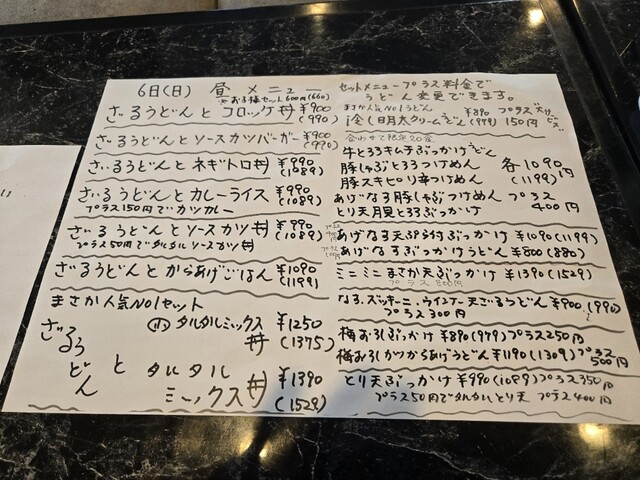 6日(日) 昼メニュー
お子様セット 600円(660)
ざるうどんとコロッケ丼 ¥900
(990)
ざるうどんとソースカツバーガー ¥900
(990)
ざるうどんとネギトロ丼 ¥990
(1089)
ざるうどんとカレーライス ¥990
(1089)
プラス150円でカツカレー
ざるうどんとソースカツ丼 ¥990
(1089)
プラス50円でタルタルソースカツ丼
ざるうどんとからあげごはん ¥1090
(1199)
まさか人気No1セット
ざるうどんと
小 タルタルミックス丼 ¥1250
(1375)
タルタルミックス丼 ¥1390
(1529)
セットメニュープラス料金で
うどん変更できます。
まさか人気No1うどん ¥890 プラス
明太クリームうどん (979) 150円
合わせて限定20食
牛とろろキムチぶっかけうどん
豚しゃぶとろろつけめん 各1090円
豚スキピリ辛つけめん (1199)
あげなす豚しゃぶつけめん プラス
とり天月見とろろぶっかけ 400円
あげなす天ぷら付ぶっかけ ¥1090(1199)
あげなすぶっかけうどん ¥800(880)
ミニミニまさか天ぶっかけ ¥1390(1529)
プラス300円
なす、ズッキーニ、ウインナー天ざるうどん ¥900(990)
プラス300円
梅おろしぶっかけ ¥890(979)プラス250円
梅おろしカツからあげうどん ¥1190(1309)プラス500円
とり天ぶっかけ ¥990(1089)プラス350円
プラス50円でタルタルとり天 プラス400円